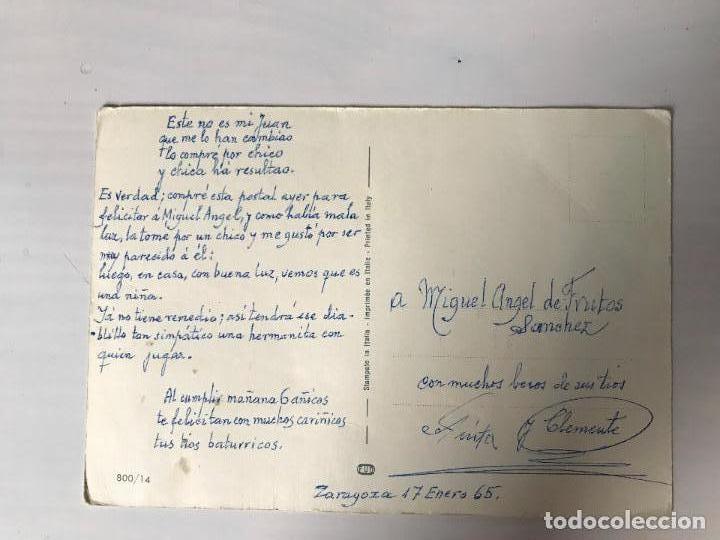 Este no es mi Juan
que me lo han cambiao
lo compré por chico
y chica há resultao.
Es verdad; compré esta postal ayer para
felicitar á Miguel Angel, y como había mala
luz, la tome por un chico y me gustó por ser
muy parecido á él:
luego, en casa, con buena luz, vemos que es
una niña.
Yá no tiene remedio; así tendrá ese dia-
blillo tan simpático una hermanita con
quien jugar.
Al cumplir mañana 6 añicos
te felicitan con muchos cariñicos
tus tios baturricos.
800/14
Stampato in Italia - Imprimée en Italie - Printed in Italy
a Miguel Angel de Frutos
Sanchez
con muchos besos de sus tios
y Clemente
Zaragoza 17 Enero 65.
todocoleccion.net